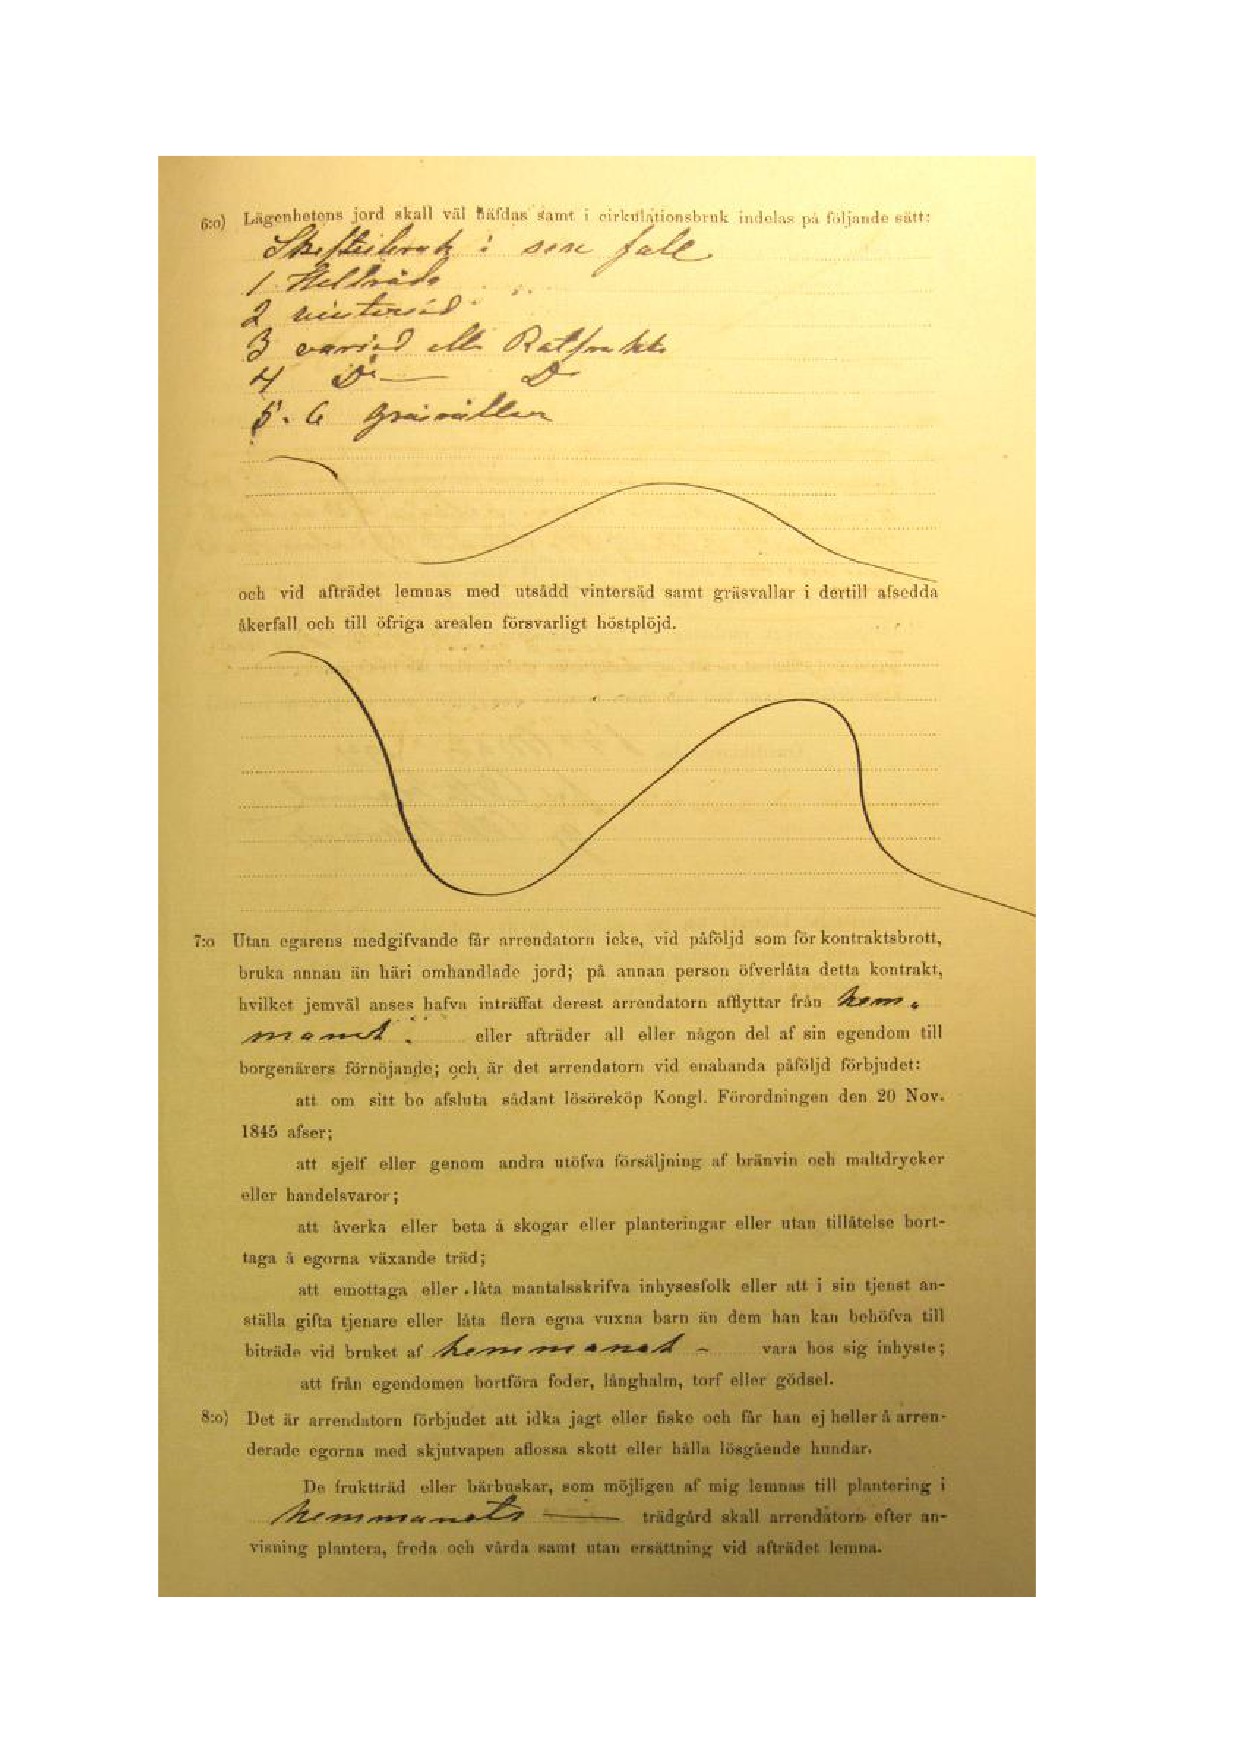 6:o) Lägenhetens jord skall väl häfdas samt i cirkulationsbruk indelas på följande sätt:
Skiftesbruk i sex fall
1 Helträda
2 vintersäd
3 vårsäd ell. Rotfrukt
4 D:o — D:o
5. 6 Gräsvallar
och vid afträdet lemnas med utsådd vintersäd samt gräsvallar i dertill afsedda
åkerfall och till öfriga arealen försvarligt höstplöjd.
7:o Utan egarens medgifvande får arrendatorn icke, vid påföljd som för kontraktsbrott,
bruka annan än häri omhandlade jord; på annan person öfverlåta detta kontrakt,
hvilket jemväl anses hafva inträffat derest arrendatorn afflyttar från hem-
manet eller afträder all eller någon del af sin egendom till
borgenärers förnöjande; och är det arrendatorn vid enahanda påföljd förbjudet:
att om sitt bo afsluta sådant lösöreköp Kongl. Förordningen den 20 Nov.
1845 afser;
att sjelf eller genom andra utöfva försäljning af bränvin och maltdrycker
eller handelsvaror;
att åverka eller beta å skogar eller planteringar eller utan tillåtelse bort-
taga å egorna växande träd;
att emottaga eller låta mantalsskrifva inhysesfolk eller att i sin tjenst an-
ställa gifta tjenare eller låta flera egna vuxna barn än dem han kan behöfva till
biträde vid bruket af hemmanet - vara hos sig inhyste;
att från egendomen bortföra foder, långhalm, torf eller gödsel.
8:o) Det är arrendatorn förbjudet att idka jagt eller fiske och får han ej heller å arren-
derade egorna med skjutvapen aflossa skott eller hålla lösgående hundar.
De fruktträd eller bärbuskar, som möjligen af mig lemnas till plantering i
hemmanets — trädgård skall arrendatorn efter an-
visning plantera, freda och vårda samt utan ersättning vid afträdet lemna.